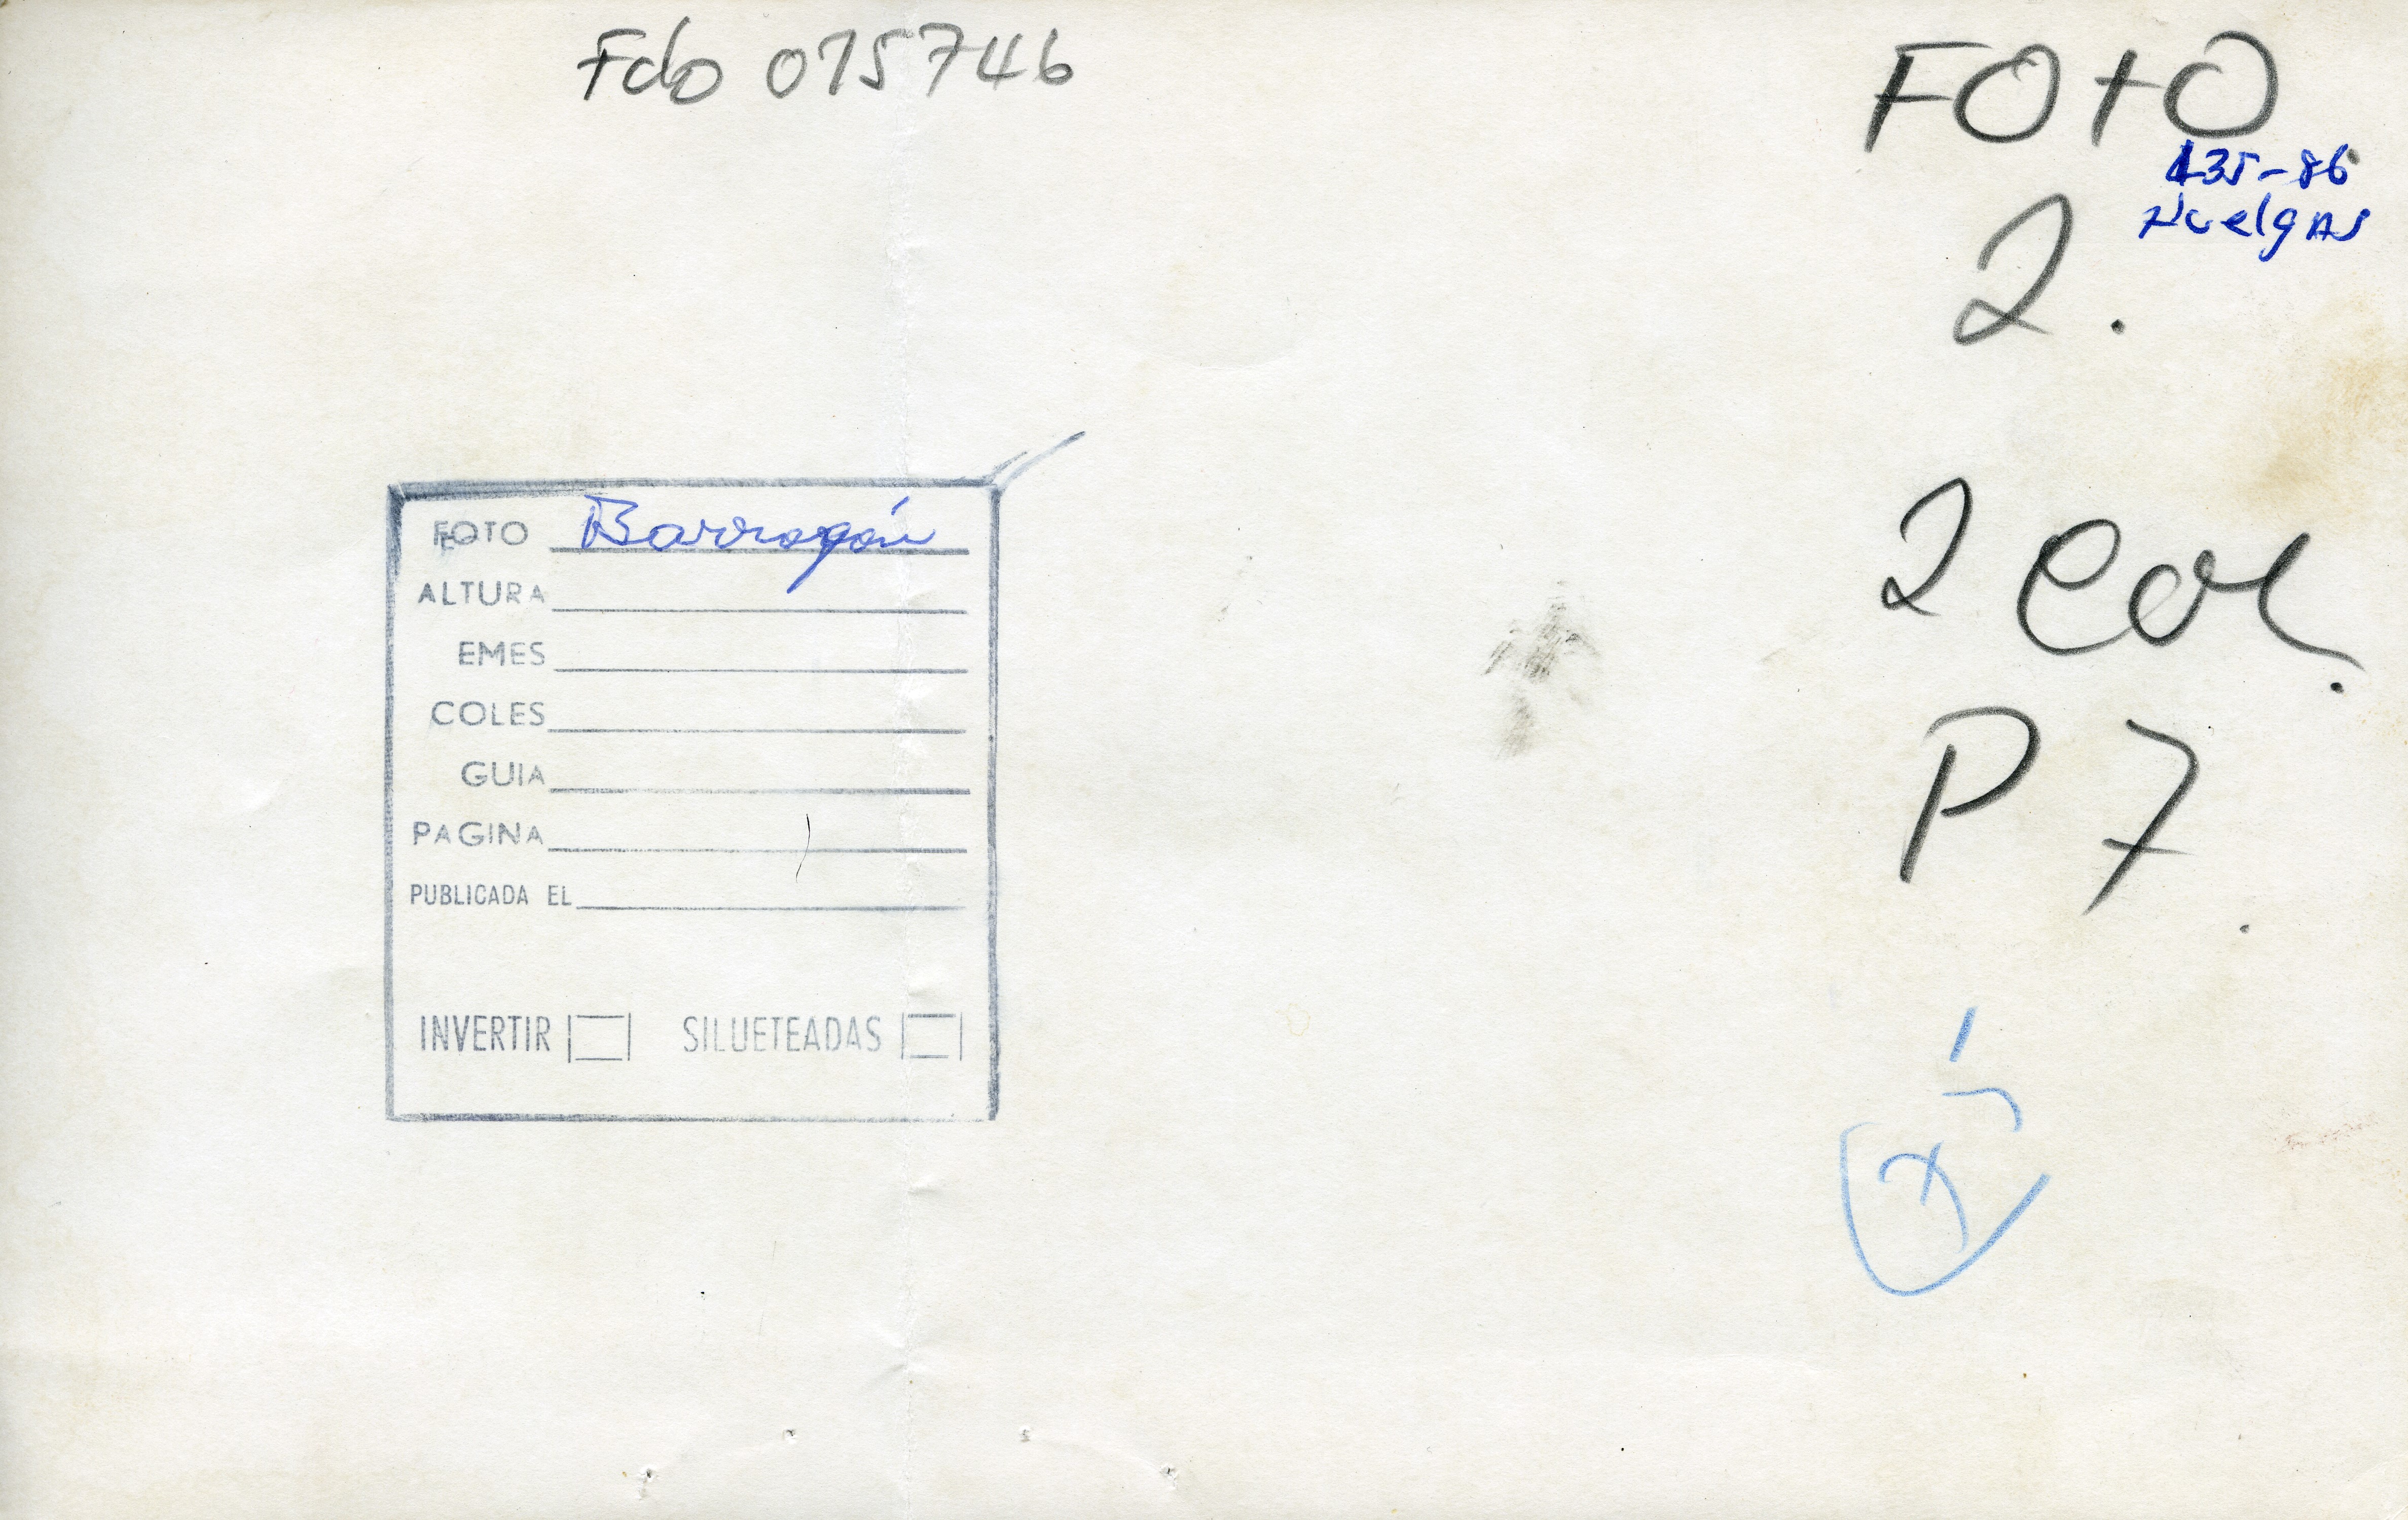 Fdo 075746
FOTO
435-86
Huelgas
2.
FOTO Barragán
ALTURA
EMES
COLES
GUIA
PAGINA
PUBLICADA EL
INVERTIR
SILUETEADAS
2 Col.
P 7.